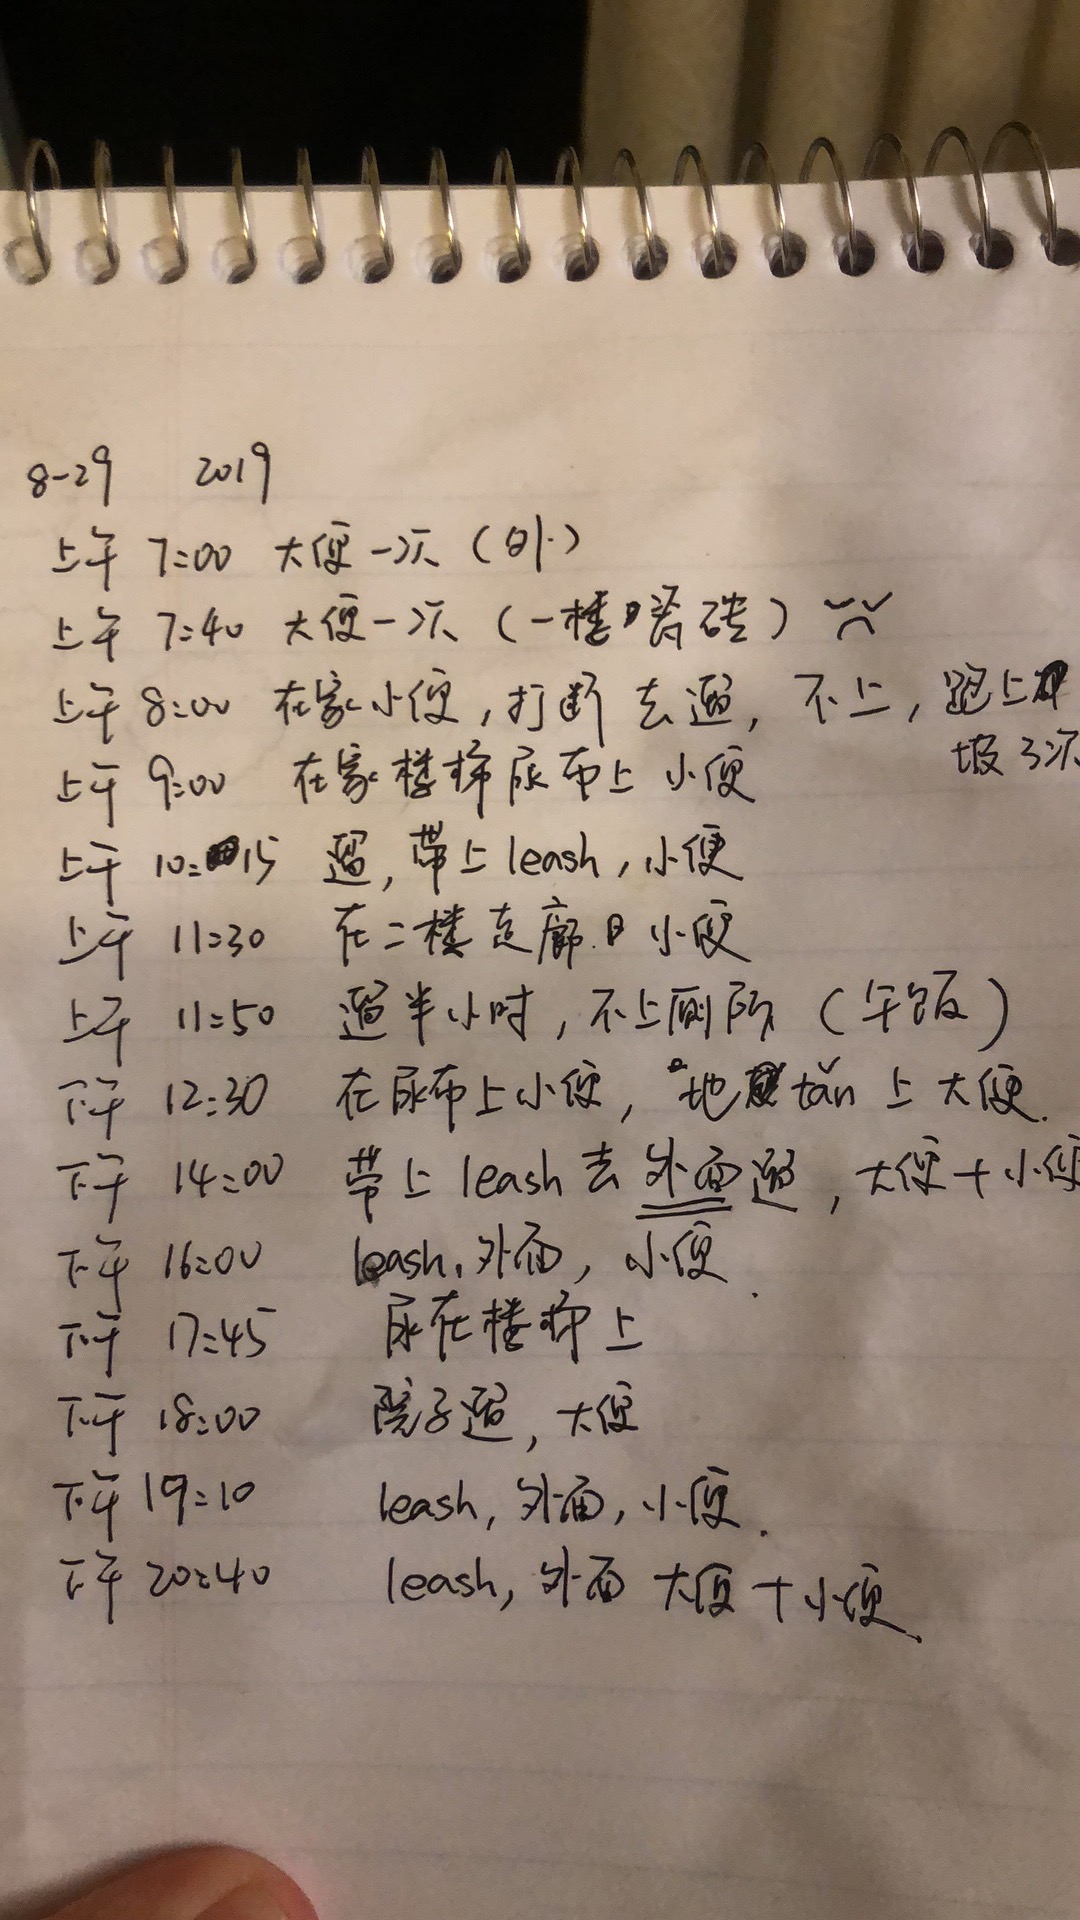 8-29 2019
上午 7:00 大便一次(外)
上午 7:40 大便一次(一楼瓷砖)
上午 8:00 在家小便,打断去遛,不上,跑上
坡3次
上午 9:00 在家楼梯尿布上小便
上午 10:15 遛,带上leash,小便
上午 11:30 在二楼走廊小便
上午 11:50 遛半小时,不上厕所(午饭)
下午 12:30 在尿布上小便,地tǎn上大便.
下午 14:00 带上leash去外面遛,大便+小便
下午 16:00 leash,外面,小便.
下午 17:45 尿在楼梯上
下午 18:00 院子遛,大便
下午 19:10 leash,外面,小便.
下午 20:40 leash,外面 大便+小便.